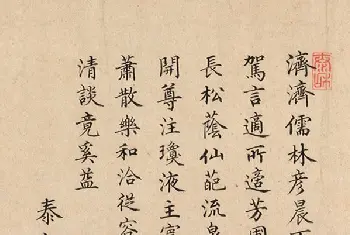 濟濟儒林彥晨
駕言適所適芳園
長松蔭仙葩流泉
開尊注瓊液主賓
蕭散樂和洽從容
清談竟奚益
泰